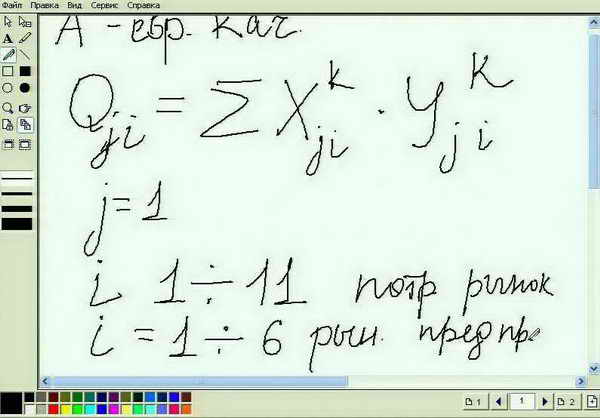 Файл Правка Вид Сервис Справка
А - евр. кач.
Qji = Σ X^k ji · Y^k ji
j = 1
i 1 ÷ 11 потр рынок
i = 1 ÷ 6 рын. предпр
1 1 2